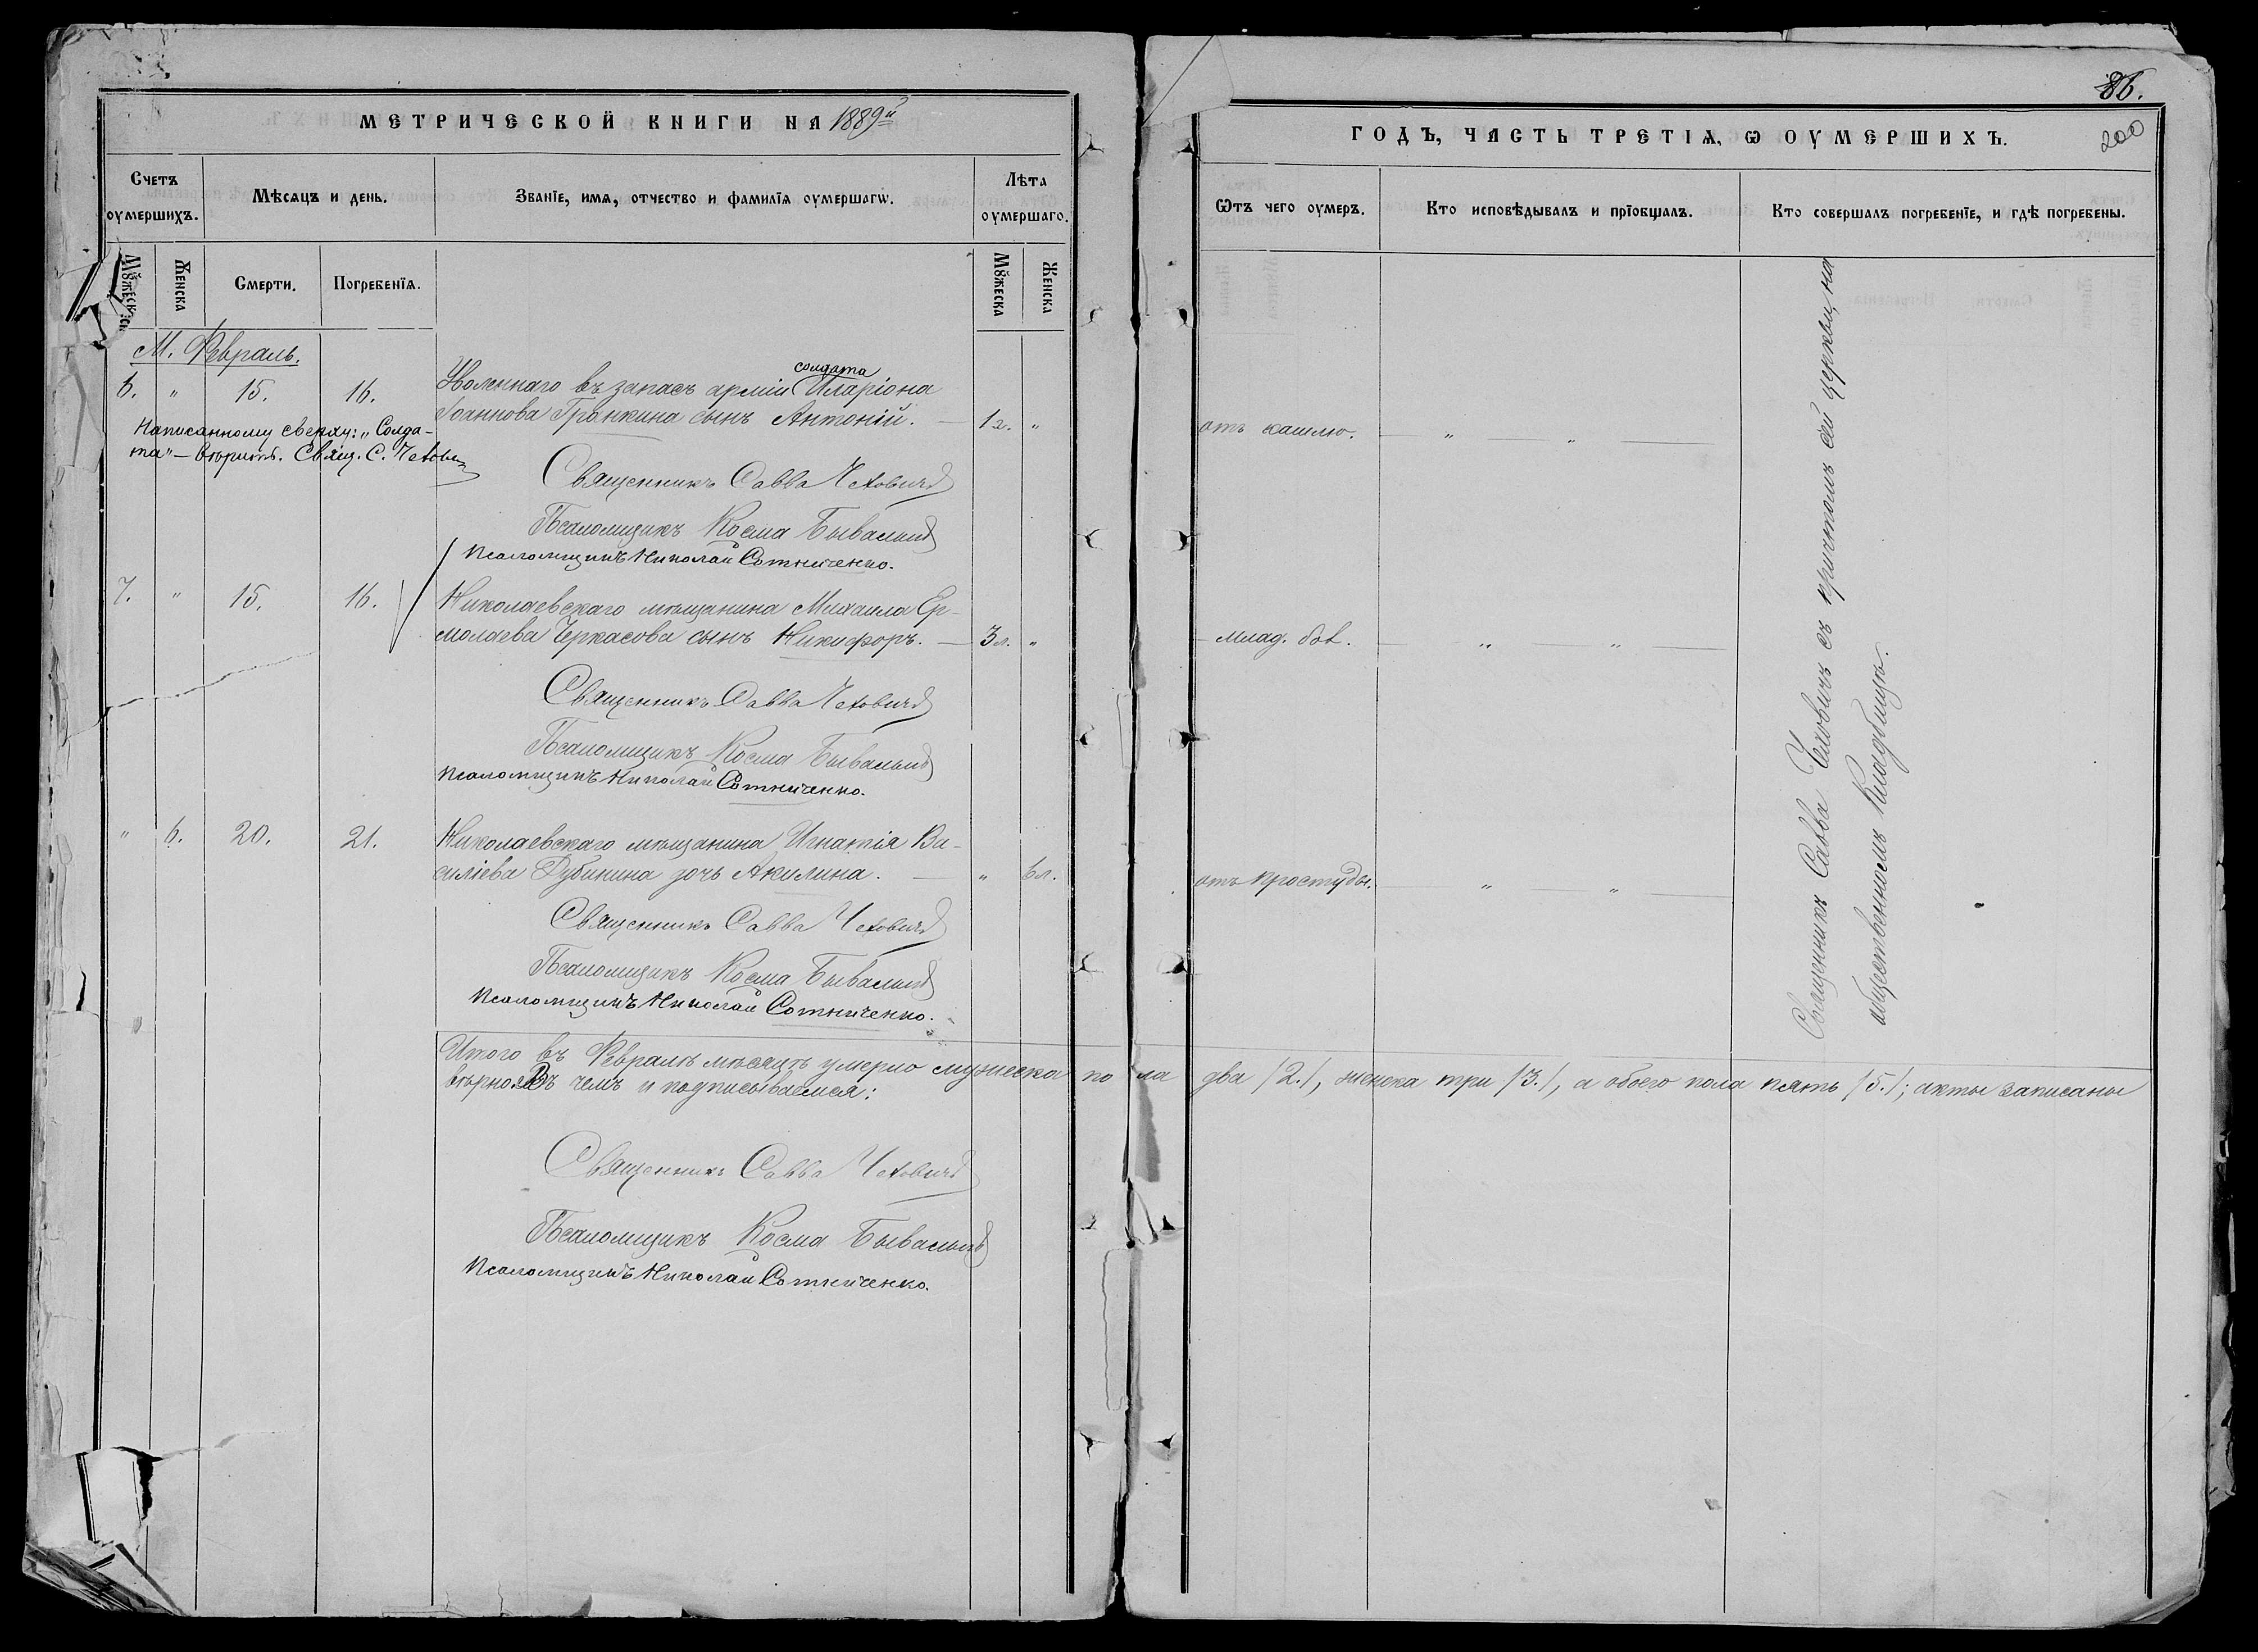 МЕТРИЧЕСКОЙ КНИГИ НА 1889й
Счетъ оумершихъ.
Мѣсяцъ и день.
Званїе, имя, отчество и фамилїя оумершагѡ.
Лѣта оумершаго.
Мꙋжеска
Женска
Смерти.
Погребенїя.
Мꙋжеска
Женска
М. Февраль.
6. " 15. 16.
солдата
Уволеннаго въ запасъ арміи Иларіона
Іоаннова Гранкина сынъ Антоній. — 1г. "
Написанному сверху: „Солда-
та" – вѣрить. Свящ. С. Чехович
Священникъ Савва Чеховичъ
Псаломщикъ Косма Бывалый
Псаломщикъ Николай Сотниченко.
7. " 15. 16.
Николаевскаго мѣщанина Михаила Ер-
молаева Черкасова сынъ Никифоръ. — 3л. "
Священникъ Савва Чеховичъ
Псаломщикъ Косма Бывалый
Псаломщикъ Николай Сотниченко.
" 6. 20. 21.
Николаевскаго мѣщанина Игнатія Ва-
силіева Дубинина дочь Акилина. — " 6л.
Священникъ Савва Чеховичъ
Псаломщикъ Косма Бывалый
Псаломщикъ Николай Сотниченко.
Итого въ Февралѣ мѣсяцѣ умерло мужеска пола два /2./, женска три /3./, а обоего пола пять /5./; акты записаны
вѣрно. Въ чемъ и подписываемся:
Священникъ Савва Чеховичъ
Псаломщикъ Косма Бывалый
Псаломщикъ Николай Сотниченко.
86.
200
ГОДЪ, ЧАСТЬ ТРЕТІѦ, Ѡ ОУМЕРШИХЪ.
Ѿтъ чего оумеръ.
Кто исповѣдывалъ и прїобщалъ.
Кто совершалъ погребенїе, и гдѣ погребены.
отъ кашлю. — " — " —
млад. бол. — " — " —
отъ простуды. — " — " —
Священникъ Савва Чеховичъ съ причтомъ сей церкви, на
общественномъ кладбищѣ.